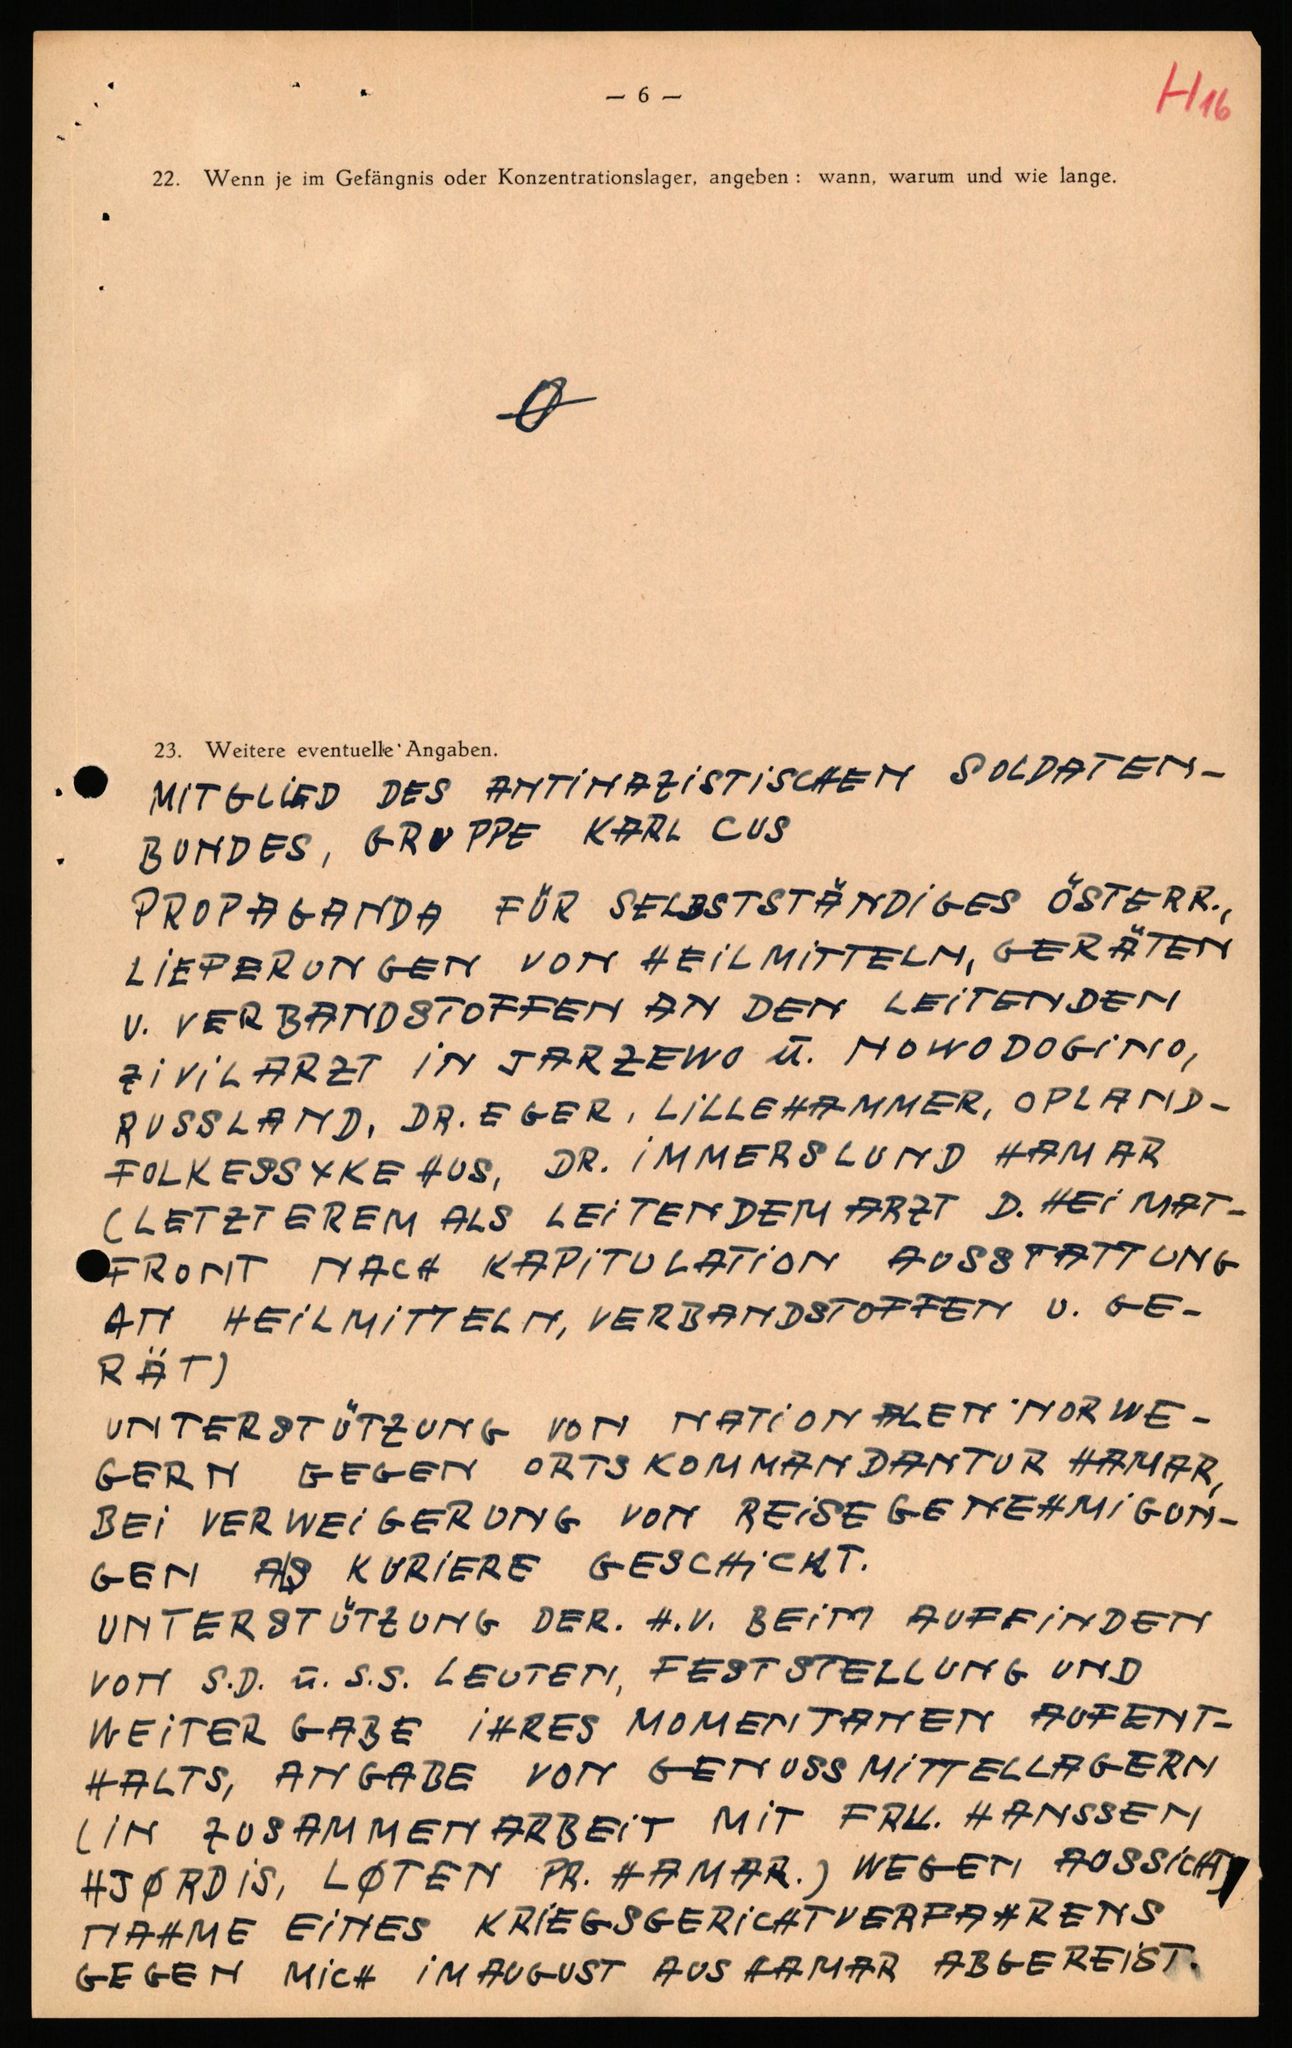 — 6 —
H16
22. Wenn je im Gefängnis oder Konzentrationslager, angeben: wann, warum und wie lange.
Ø
23. Weitere eventuelle Angaben.
MITGLIED DES ANTINAZISTISCHEN SOLDATEN-
BUNDES, GRUPPE KARL CUS
PROPAGANDA FÜR SELBSTSTÄNDIGES ÖSTERR.,
LIEFERUNGEN VON HEILMITTELN, GERÄTEN
U. VERBANDSTOFFEN AN DEN LEITENDEN
ZIVILARZT IN JARZEWO U. NOWODOGINO,
RUSSLAND, DR. EGER, LILLEHAMMER, OPLAND-
FOLKESSYKEHUS, DR. IMMERSLUND HAMAR
(LETZTEREM ALS LEITENDEM ARZT D. HEIMAT-
FRONT NACH KAPITULATION AUSSTATTUNG
AN HEILMITTELN, VERBANDSTOFFEN U. GE-
RÄT)
UNTERSTÜTZUNG VON NATIONALEN NORWE-
GERN GEGEN ORTSKOMMANDANTUR HAMAR,
BEI VERWEIGERUNG VON REISEGENEHMIGUN-
GEN ALS KURIERE GESCHICKT.
UNTERSTÜTZUNG DER. H.V. BEIM AUFFINDEN
VON S.D. U. S.S. LEUTEN, FESTSTELLUNG UND
WEITERGABE IHRES MOMENTANEN AUFENT-
HALTS, ANGABE VON GENUSSMITTELLAGERN
(IN ZUSAMMENARBEIT MIT FRL. HANSSEN
HJØRDIS, LØTEN PR. HAMAR.) WEGEN AUSSICHT
NAHME EINES KRIEGSGERICHTVERFAHRENS
GEGEN MICH IM AUGUST AUS HAMAR ABGEREIST.